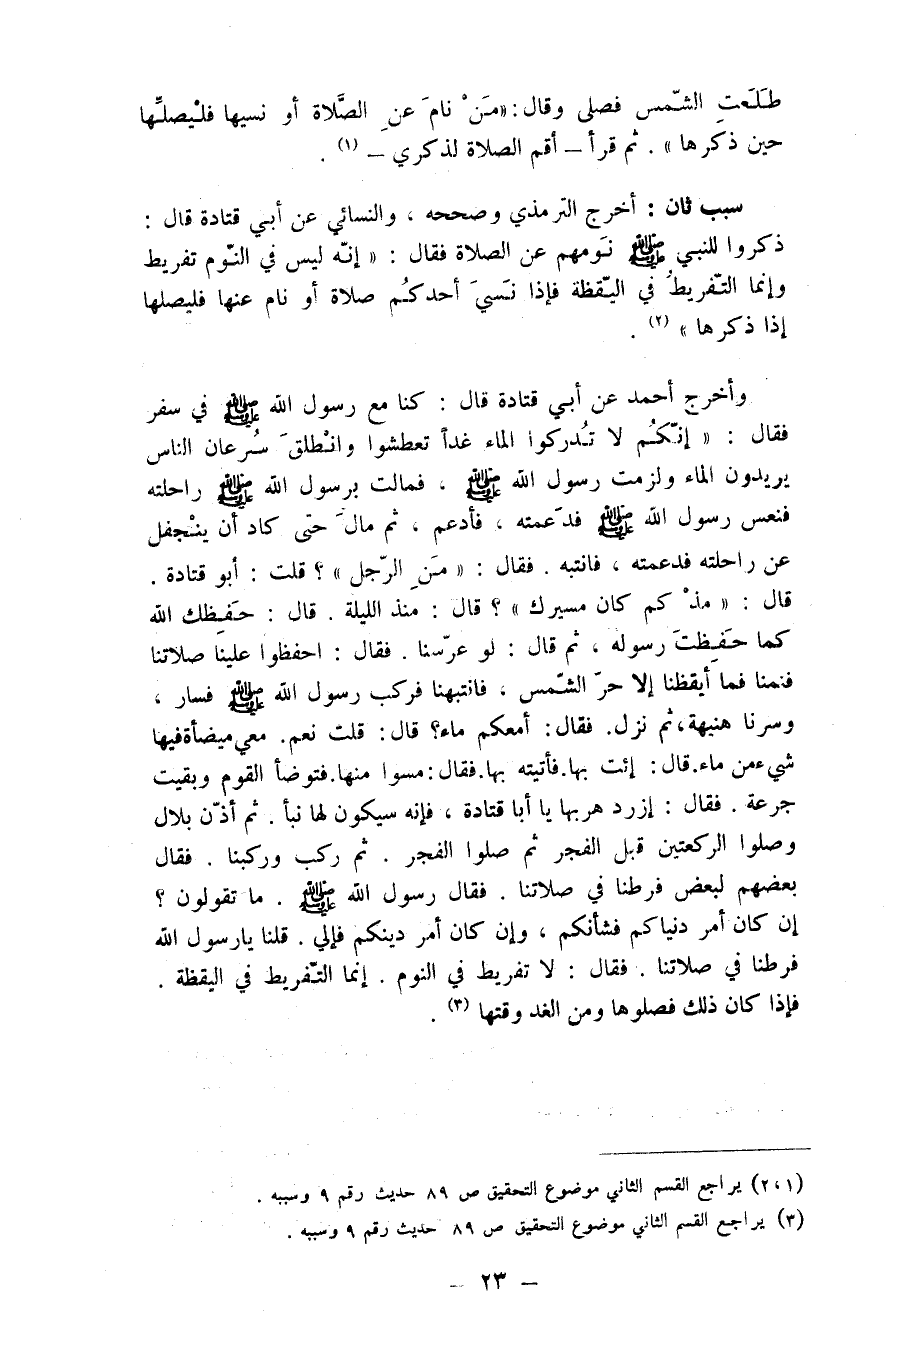 طَلَعتِ الشّمس فصلى وقال: «مَنْ نامَ عنِ الصَّلاة أو نسيها فلْيصلِّها
حين ذكرها » . ثم قرأ – أقم الصلاة لذكري – (١) .
سبب ثان : أخرج الترمذي وصححه ، والنسائي عن أبي قتادة قال :
ذكروا للنبي ﷺ نَومهم عن الصلاة فقال : « إنّه ليس في النّوم تفريط
وإنما التّفريطُ في اليَقظة فإذا نَسيَ أحدكُم صلاة أو نام عنها فليصلها
إذا ذكرها » (٢) .
وأخرج أحمد عن أبي قتادة قال : كنا مع رسول الله ﷺ في سفر
فقال : « إنّكُم لا تُدركوا الماء غداً تعطشوا وانْطلقَ سُرعان الناس
يريدون الماء ولزمت رسول الله ﷺ ، فمالت برسول الله ﷺ راحلته
فنعس رسول الله ﷺ فدَعمته ، فأدعم ، ثم مالَ حتى كاد أن ينْجفل
عن راحلته فدعمته ، فانتبه . فقال : « مَنِ الرّجل » ؟ قلت : أبو قتادة .
قال : « مذْ كم كان مسيرك » ؟ قال : منذ الليلة . قال : حَفِظك الله
كما حَفِظتَ رسوله ، ثم قال : لو عرّسنا . فقال : احفظوا علينا صلاتنا
فنمنا فما أيقظنا إلا حرّ الشّمس ، فانتبهنا فركب رسول الله ﷺ فسار ،
وسرنا هنيهة، ثم نزل. فقال: أمعكم ماء؟ قال: قلت نعم. معي ميضأة فيها
شيء من ماء. قال: إئت بها. فأتيته بها. فقال: مسوا منها. فتوضأ القوم وبقيت
جرعة . فقال : إزرد هربها يا أبا قتادة ، فإنه سيكون لها نبأ . ثم أذّن بلال
وصلوا الركعتين قبل الفجر ثم صلوا الفجر . ثم ركب وركبنا . فقال
بعضهم لبعض فرطنا في صلاتنا . فقال رسول الله ﷺ . ما تقولون ؟
إن كان أمر دنياكم فشأنكم ، وإن كان أمر دينكم فإلي . قلنا يارسول الله
فرطنا في صلاتنا . فقال : لا تفريط في النوم . إنما التّفريط في اليقظة .
فإذا كان ذلك فصلوها ومن الغد وقتها (٣) .
(١ ، ٢) يراجع القسم الثاني موضوع التحقيق ص ٨٩ حديث رقم ٩ وسببه .
(٣) يراجع القسم الثاني موضوع التحقيق ص ٨٩ حديث رقم ٩ وسببه .
– ٢٣ –